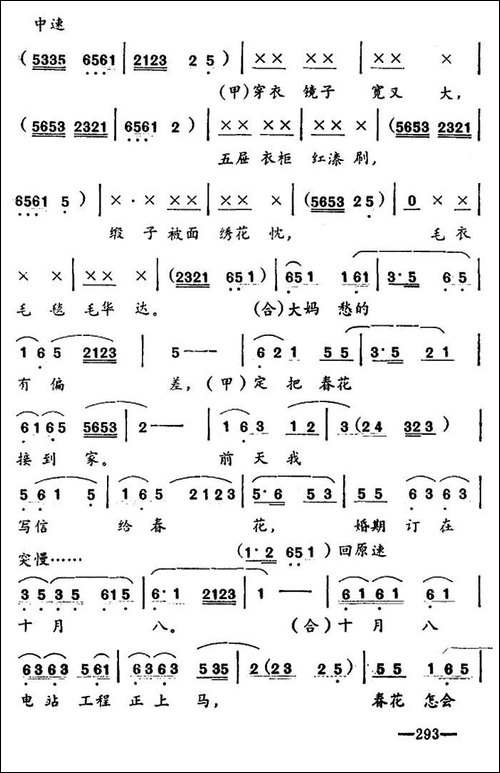 中速
(5335 6561 | 2123 2 5) | ×× ×× | ×× × |
(甲)穿衣 镜子 宽又 大,
(5653 2321 | 6561 2) | ×× ×× | ×× × | (5653 2321
五屉 衣柜 红漆 刷,
6561 5) | × · × ×× | ×× × | (5653 2 5) | 0 × × |
缎 子 被面 绣花 忱, 毛 衣
× × | ×× × | (2321 651) | 651 161 | 3·5 6 5 |
毛 毯 毛华 达。 (合)大妈 愁的
1 6 5 2123 | 5 — | 6 2 1 5 5 | 3·5 2 1 |
有 偏 差,(甲)定 把 春花
6165 5653 | 2 — | 1 6 3 1 2 | 3 (24 323) |
接到 家。 前 天 我
5 6 1 5 | 1 6 5 2123 | 5·6 5 3 | 5 5 6363 |
写信 给春 花, 婚期 订 在
突慢…… (1·2 651) 回原速
3535 615 | 6·1 2123 | 1 — | 6161 6 1 |
十 月 八。 (合)十 月 八
6363 561 | 6363 535 | 2 (23 2 5) | 5 5 1 6 5 |
电 站 工程 正 上 马, 春花 怎会
—293—